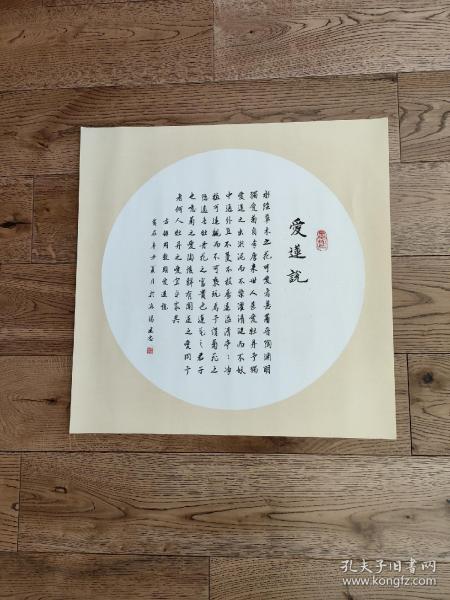 愛蓮說
水陸草木之花可愛者甚蕃晉陶淵明
獨愛菊自李唐來世人甚愛牡丹予獨
愛蓮之出淤泥而不染濯清漣而不妖
中通外直不蔓不枝香遠益清亭亭净
植可遠觀而不可褻玩焉予謂菊花之
隱逸者牡丹花之富貴也蓮花之君子
之噫菊之愛陶後鮮有聞蓮之愛同予
者何人牡丹之愛宜乎衆矣
古錄周敦頤愛蓮說
孔夫子旧书网
www.kongfz.com